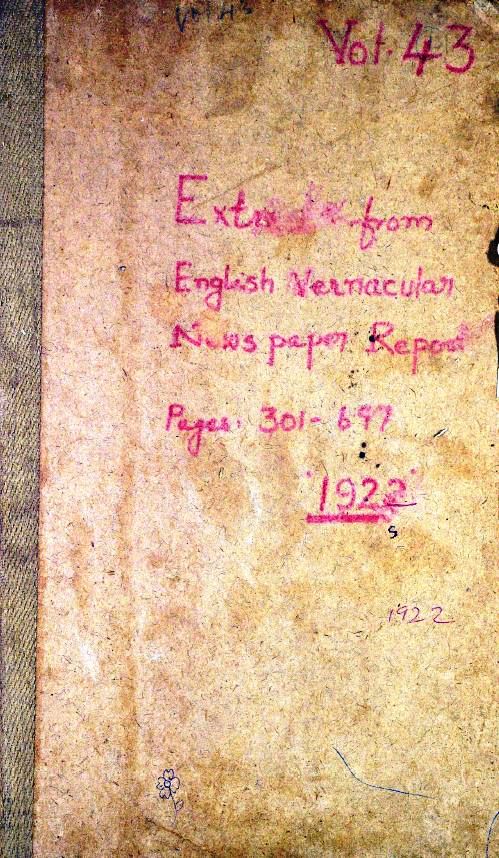 Vol. 43
from
English Vernacular
News paper Report
Pages. 301-697
1922
1922